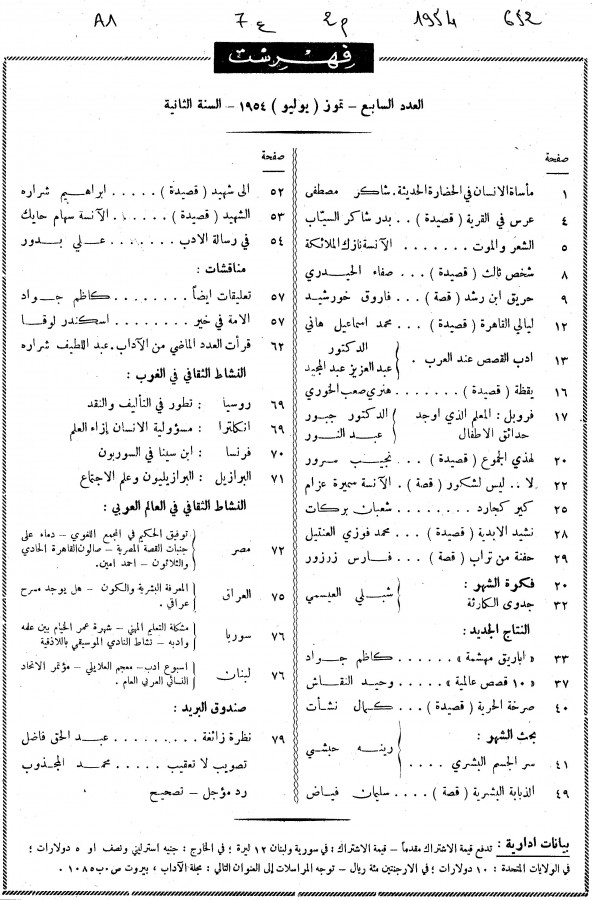 A1 7ع م2 1954 652
فهرست
العدد السابع – تموز ( يوليو ) ١٩٥٤ – السنة الثانية
صفحة
١ مأساة الانسان في الحضارة الحديثة . شاكر مصطفى
٤ عرس في القرية ( قصيدة ) . . بدر شاكر السيّاب
٥ الشعر والموت . . . . . . . الآنسة نازك الملائكة
٨ شخص ثالث ( قصيدة ) . . . صفاء الحيدري
٩ حريق ابن رشد ( قصة ) . . فاروق خورشيد
١٢ ليالي القاهرة ( قصيدة ) . . محمد اسماعيل هاني
١٣ ادب القصص عند العرب . { الدكتور عبد العزيز عبد المجيد
١٦ يقظة ( قصيدة ) . . . . . . هنري صعب الخوري
١٧ فروبل : المعلم الذي اوجد حدائق الاطفال { الدكتور جبور عبد النور
٢٠ لهذي الجموع ( قصيدة ) . . . نجيب سرور
٢٢ لا . . ليس لشكور ( قصة ) . الآنسة سميرة عزام
٢٥ كير كجارد . . . . . . . شعبان بركات
٢٨ نشيد الابدية ( قصيدة ) . . . محمد فوزي العنتيل
٢٩ حفنة من تراب ( قصة ) . . فارس زرزور
٢٠ فكرة الشهر :
٣٢ جدوى الكارثة { شبلي العيسمي
النتاج الجديد :
٣٣ « اباريق مهشمة » . . . . . كاظم جواد
٣٧ « ١٠ قصص عالمية » . . . . وحيد النقاش
٤٠ صرخة الحرية ( قصيدة ) . . . كمال نشأت
بحث الشهر :
٤١ سر الجسم البشري . . . . { رينه حبشي
٤٩ الذبابة البشرية ( قصة ) . . سليمان فياض
صفحة
٥٢ الى شهيد ( قصيدة ) . . . . . ابراهيم شراره
٥٣ الشهيد ( قصيدة ) . . . . الآنسة سهام حايك
٥٤ في رسالة الادب . . . . . علي بدور
مناقشات :
٥٧ تعليقات ايضاً . . . . . . كاظم جواد
٥٧ الامة في خبر . . . . . . اسكندر لوقا
٦٢ قرأت العدد الماضي من الآداب . عبد اللطيف شراره
النشاط الثقافي في الغرب :
٦٩ روسيا : تطور في التأليف والنقد
٦٩ انكلترا : مسؤولية الانسان إزاء العلم
٧٠ فرنسا : ابن سينا في السوربون
٧١ البرازيل : البرازيليون وعلم الاجتماع
النشاط الثقافي في العالم العربي :
٧٢ مصر { توفيق الحكيم في المجمع اللغوي – دماء على جنبات القصة المصرية – صالون القاهرة الحادي والثلاثون – احمد امين .
٧٥ العراق { المعرفة البشرية والكون – هل يوجد مسرح عراقي .
٧٦ سوريا { مشكلة التعليم المهني – شهرة عمر الخيام بين علمه وادبه – نشاط النادي الموسيقي باللاذقية
٧٦ لبنان { اسبوع ادب – معجم العلايلي – مؤتمر الاتحاد النسائي العربي العام .
صندوق البريد :
٧٩ نظرة زائغة . . . . . . . . عبد الحق فاضل
تصويب لا تعقيب . . . . . محمد المجذوب
رد مؤجل – تصحيح
بيانات ادارية : تدفع قيمة الاشتراك مقدماً – قيمة الاشتراك : في سورية ولبنان ١٢ ليرة ؛ في الخارج : جنيه استرليني ونصف او ٥ دولارات ؛
في الولايات المتحدة : ١٠ دولارات ؛ في الارجنتين مئة ريال – توجه المراسلات إلى العنوان التالي : مجلة الآداب ، بيروت ص . ب ١٠٨٥ .